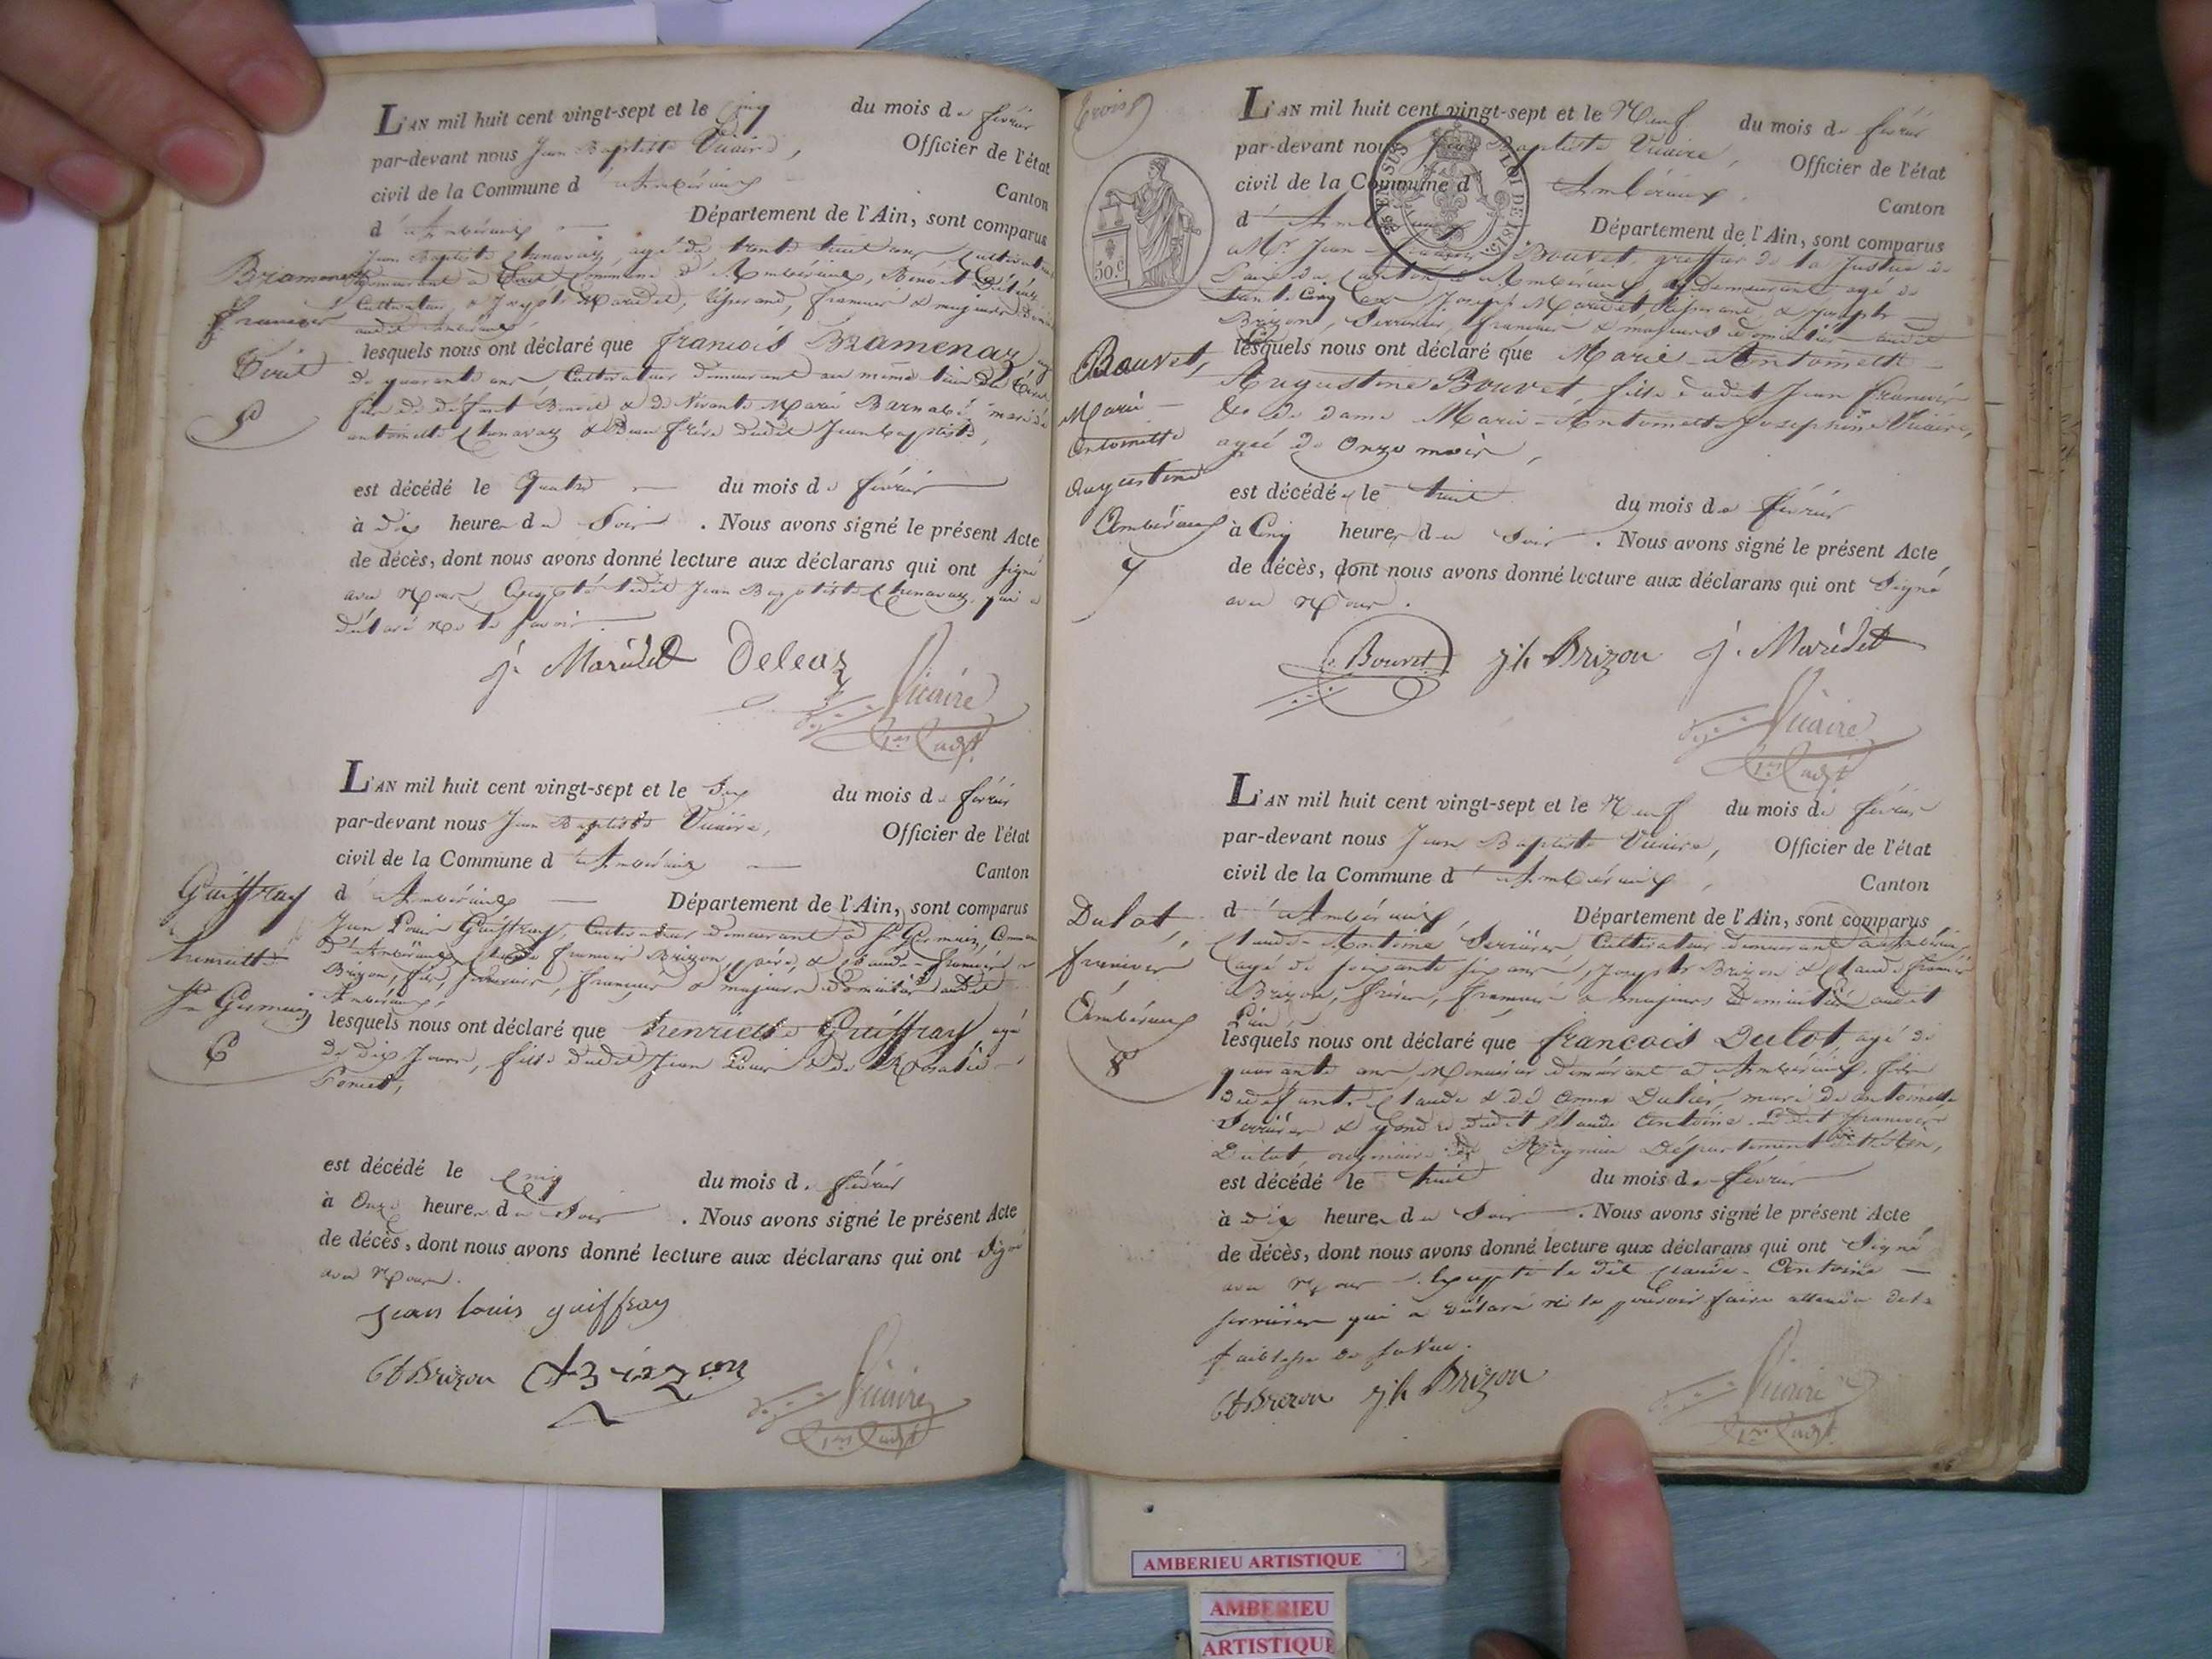 L'AN mil huit cent vingt-sept et le Cinq du mois de février
par-devant nous Jean Baptiste Vicaire, Officier de l'état
civil de la Commune d'Ambérieux Canton
d'Ambérieux Département de l'Ain, sont comparus
Jean Baptiste Chenavaz, agé de trente huit ans, Cultivateur
demeurant à Tiret Commune d'Ambérieux, Benoit Deleaz,
Cultivateur, & Joseph Maridet, tisserand, francais & majeurs
audit Ambérieux
lesquels nous ont déclaré que francois Bramenaz agé
de quarante ans, Cultivateur demeurant au même lieu de Tiret
fils de défunt Benoit & de vivante Marie Barnabé, mari de
antoinette Chenavaz & Beau frère dudit Jean Baptiste,
est décédé le quatre du mois de février
à dix heures du Soir. Nous avons signé le présent Acte
de décès, dont nous avons donné lecture aux déclarans qui ont signé
avec Nous, Excepté ledit Jean Baptiste Chenavaz, qui a
déclaré ne le savoir.
j. Maridet Deleaz
Vicaire
francois
Tiret
5
L'AN mil huit cent vingt-sept et le Six du mois de février
par-devant nous Jean Baptiste Vicaire, Officier de l'état
civil de la Commune d'Ambérieux Canton
d'Ambérieux Département de l'Ain, sont comparus
Jean Louis Guiffray, Cultivateur demeurant à St Germain, Commune
d'Ambérieux, Claude francois Brizon, père, & Claude-francois
Brizon, fils, francais & majeurs domiciliés audit
Ambérieux,
lesquels nous ont déclaré que henriette Guiffray agé
de dix Jours, fille dudit Jean Louis & de Rosalie
Poncet,
est décédé le Cinq du mois de février
à Onze heures du Soir. Nous avons signé le présent Acte
de décès, dont nous avons donné lecture aux déclarans qui ont Signé
avec Nous.
jean louis guiffray
Cf Brizon Cf Brizon
Vicaire
Guiffray
henriette
St Germain
6
trois
50 c
LOI DE 1815
L'AN mil huit cent vingt-sept et le Neuf du mois de février
par-devant nous Jean Baptiste Vicaire, Officier de l'état
civil de la Commune d'Ambérieux, Canton
d'Ambérieux Département de l'Ain, sont comparus
Mr Jean francois Bouvet, greffier de la Justice de
Paix du Canton d'Ambérieux, y demeurant agé de
trente Cinq ans, Joseph Maridet, tisserand, & Joseph
Brizon, Serrurier, francais & majeurs domiciliés audit
lesquels nous ont déclaré que Marie-Antoinette
Augustine Bouvet, fille dudit Jean francois
& de dame Marie-Antoinette Josephine Vicaire,
agée de Onze mois,
est décédée le huit du mois de février
à Cinq heures du Soir. Nous avons signé le présent Acte
de décès, dont nous avons donné lecture aux déclarans qui ont Signé
avec Nous.
Bouvet jh Brizon j. Maridet
Vicaire
Bouvet,
Marie
Antoinette
Augustine
Ambérieux
7
L'AN mil huit cent vingt-sept et le Neuf du mois de février
par-devant nous Jean Baptiste Vicaire, Officier de l'état
civil de la Commune d'Ambérieux, Canton
d'Ambérieux, Département de l'Ain, sont comparus
Claude-Antoine Serrière, Cultivateur demeurant à Ambérieux
agé de soixante six ans, Joseph Brizon & Claude francois
Brizon, frères, francais & majeurs domiciliés audit
Lieu,
lesquels nous ont déclaré que francois Dulot, agé de
quarante ans, Menuisier demeurant à Ambérieux, fils
de défunts Claude & de Anne Dulier, mari de antoinette
Serrière & gendre dudit Claude Antoine. Ledit francois
Dulot, originaire de Département
est décédé le huit du mois de février
à dix heures du Soir. Nous avons signé le présent Acte
de décès, dont nous avons donné lecture aux déclarans qui ont Signé
avec Nous. Excepté le dit Claude-Antoine
Serrière qui a déclaré ne le pouvoir faire attendu de la
faiblesse de sa Vue.
Cf Brizon jh Brizon
Vicaire
Dulot,
francois
Ambérieux
8
AMBERIEU ARTISTIQUE
AMBERIEU
ARTISTIQUE